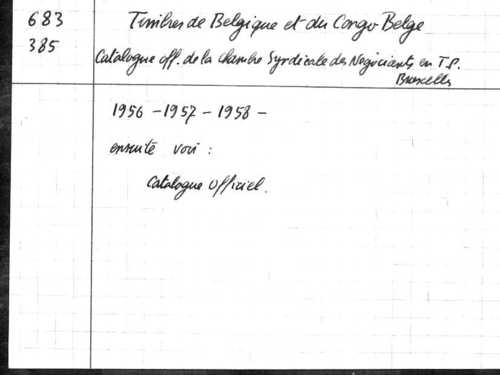 683
385
Timbres de Belgique et du Congo Belge
Catalogue off. de la Chambre Syndicale des Négociants en T.P.
Bruxelles
1956 - 1957 - 1958 -
ensuite voir :
Catalogue Officiel.